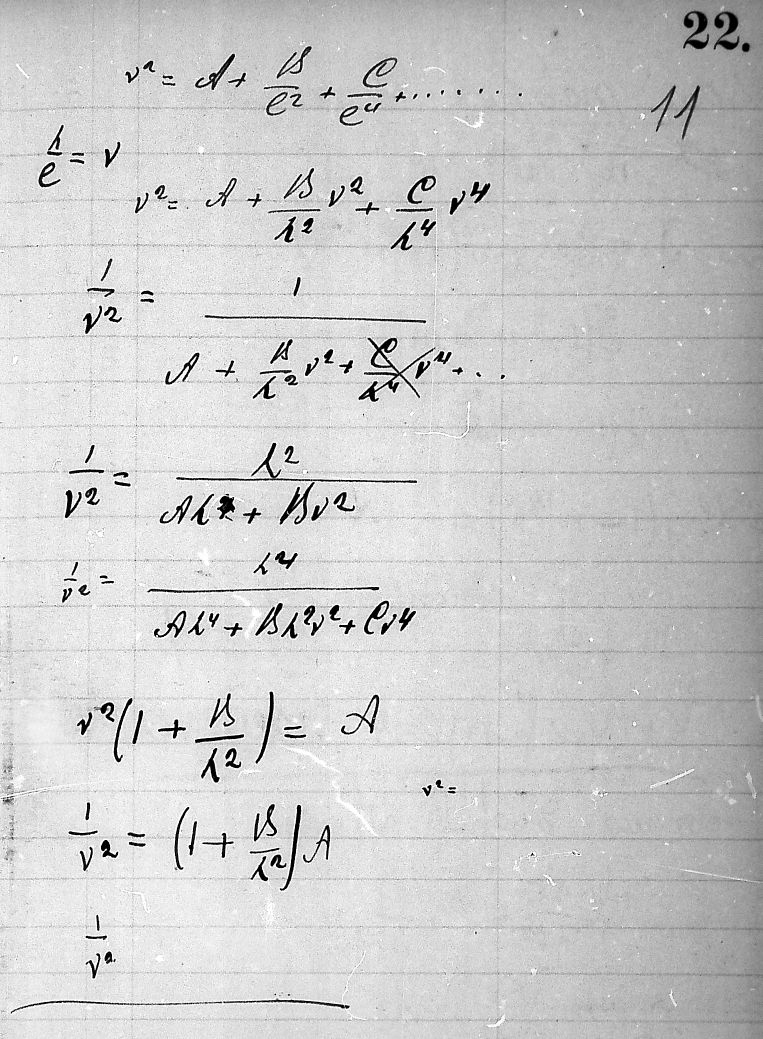 22.
11
ν² = A + B/e² + C/e⁴ + ........
λ/e = ν
ν² = A + B/λ² ν² + C/λ⁴ ν⁴
1/ν² = 1/(A + B/λ² ν² + C/λ⁴ ν⁴ + ...)
1/ν² = λ²/(Aλ² + Bν²)
1/ν² = λ⁴/(Aλ⁴ + Bλ²ν² + Cν⁴)
ν²(1 + B/λ²) = A
ν² =
1/ν² = (1 + B/λ²)A
1/ν²